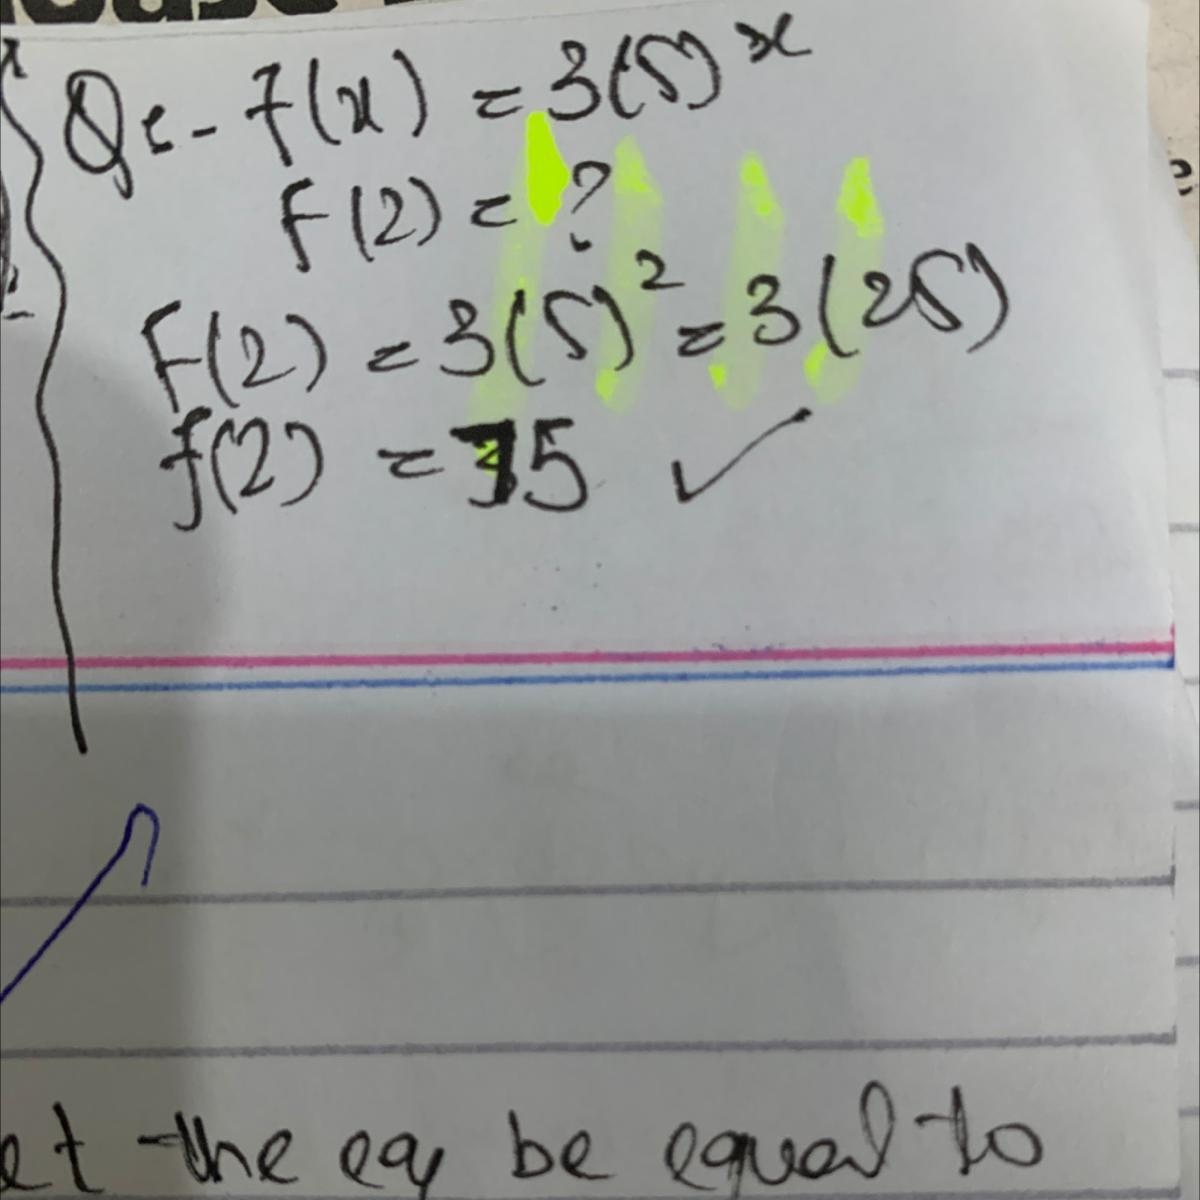 Q:- f(x) = 3(5)^x
F(2) = ?
F(2) = 3(5)² = 3(25)
f(2) = 75 ✓
the eq be equal to